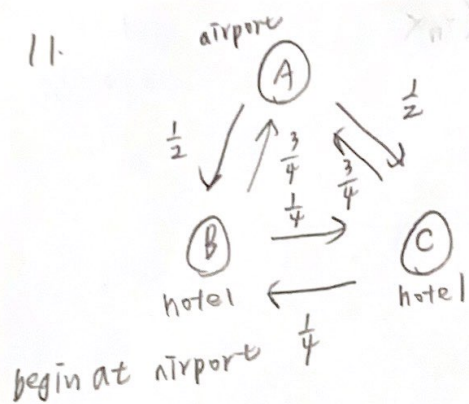 11.
airport
A
1/2
1/2
3/4
3/4
1/4
B
C
hotel
hotel
1/4
begin at airport